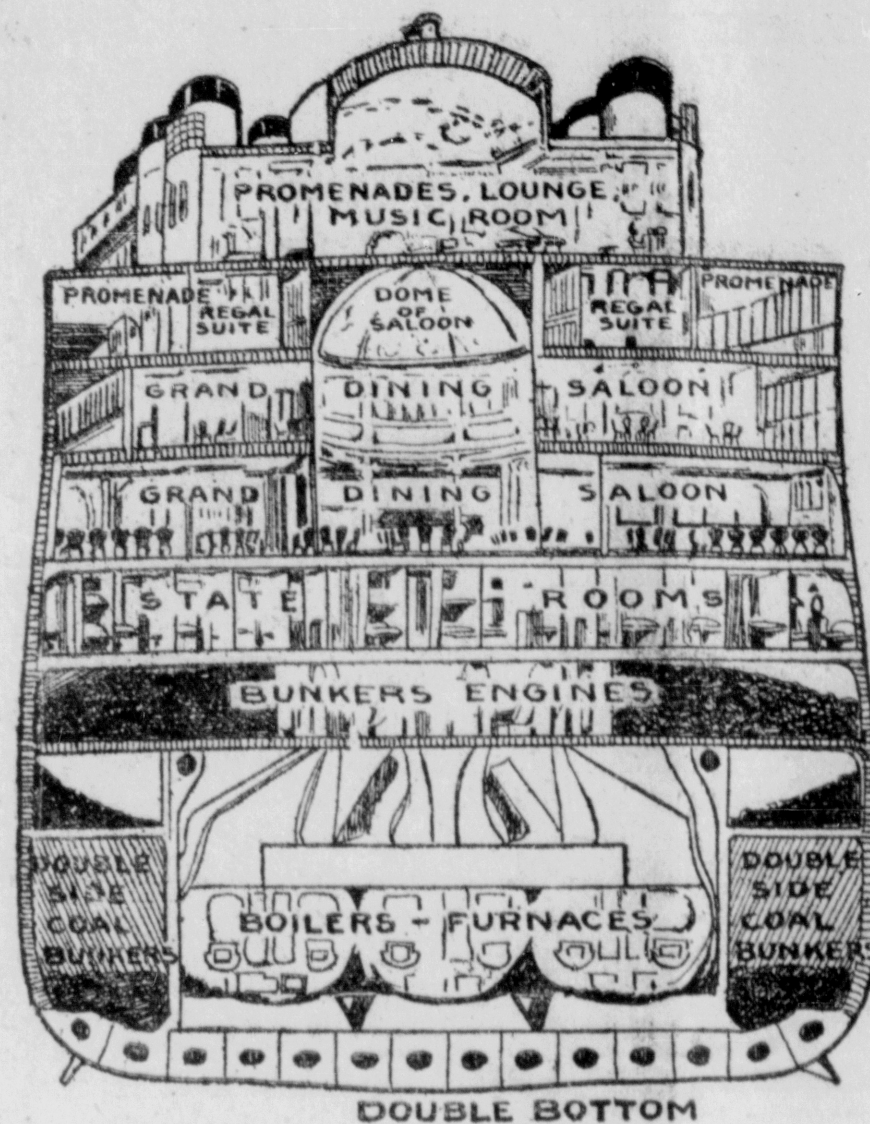 PROMENADES, LOUNGE,
MUSIC ROOM
PROMENADE
REGAL
SUITE
DOME
OF
SALOON
REGAL
SUITE
PROMENADE
GRAND DINING SALOON
GRAND DINING SALOON
STATE ROOMS
BUNKERS ENGINES
DOUBLE
SIDE
COAL
BUNKERS
BOILERS - FURNACES
DOUBLE
SIDE
COAL
BUNKERS
DOUBLE BOTTOM